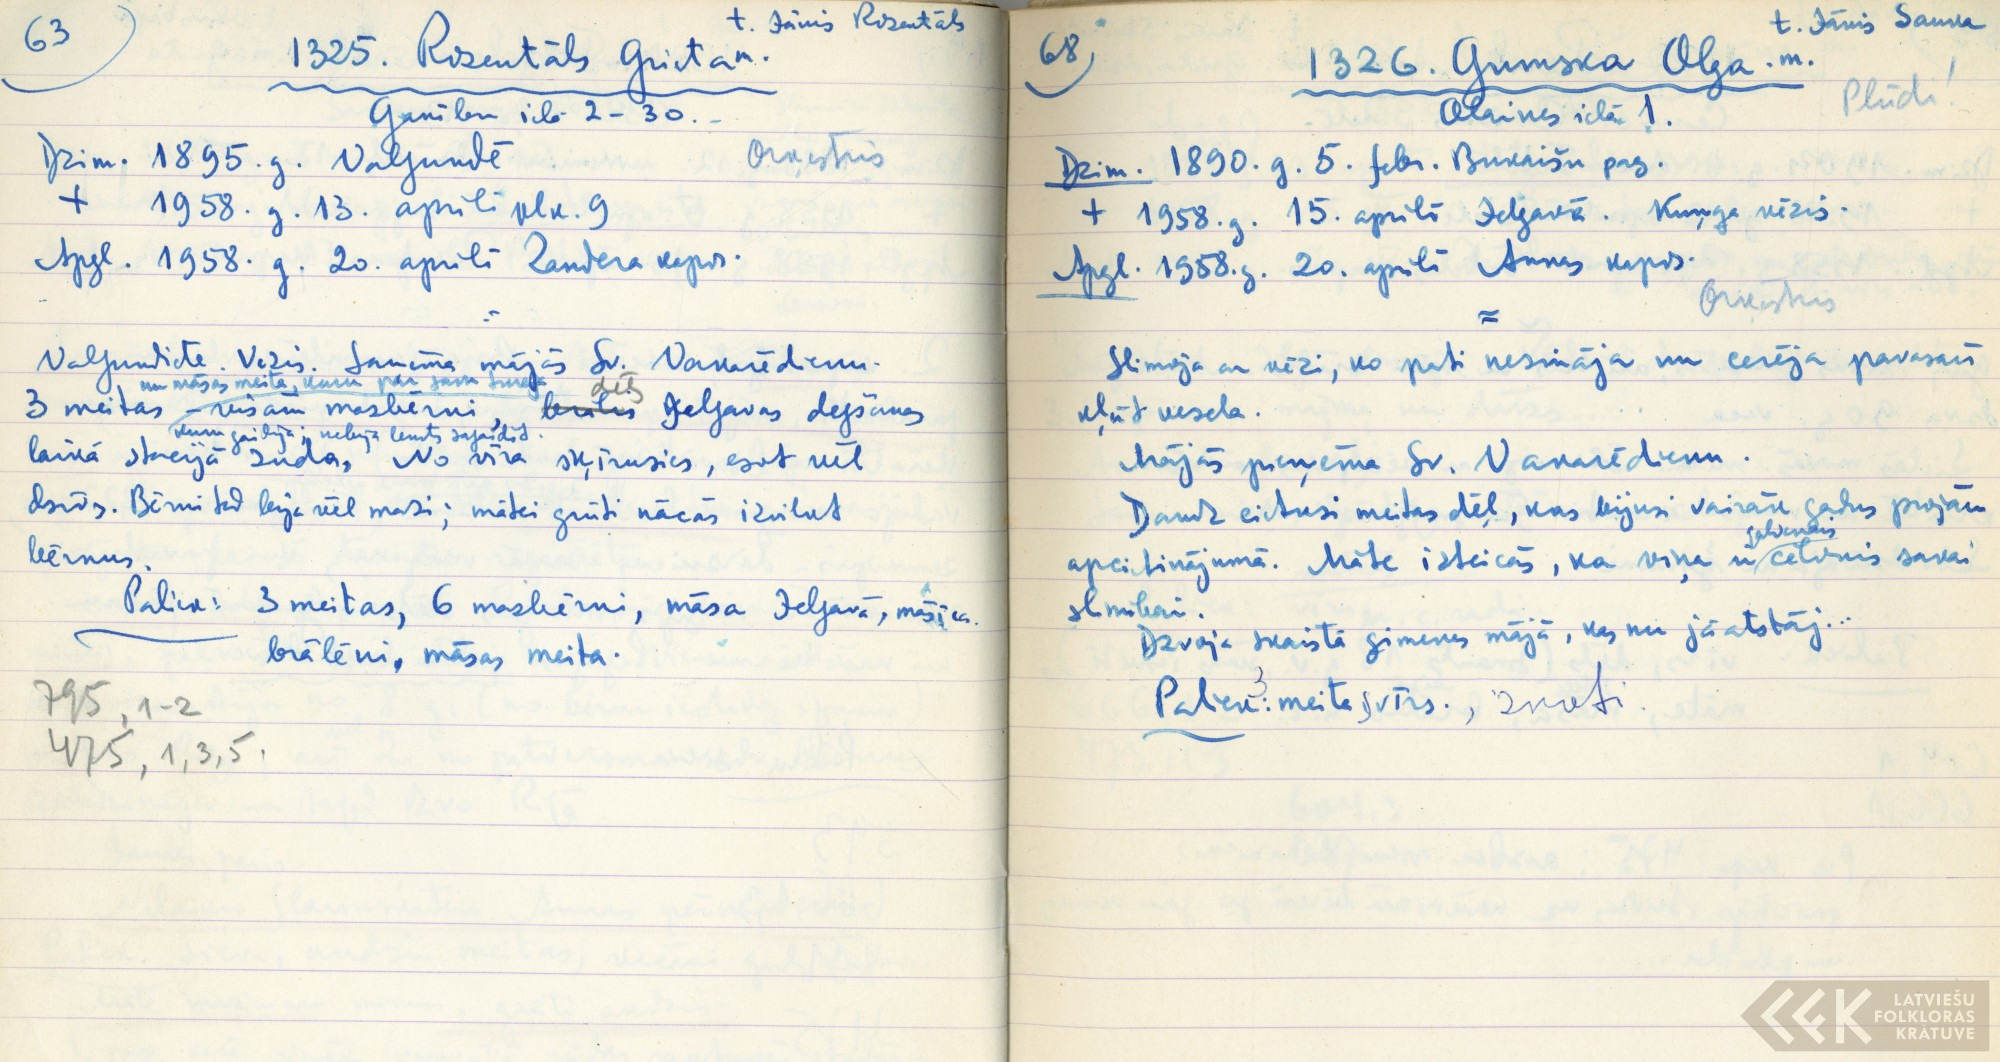 63
t. Jānis Rozentāls
1325. Rozentāls Grieta m.
Ganību ielā 2-30.
Dzim. 1895. g. Valgundē
Orķestris
+ 1958. g. 13. aprīlī plk. 9
Apgl. 1958. g. 20. aprīlī Zandera kapos.
Valgundiete. Vēzis. Saņēma mājās Sv. Vakarēdienu.
un māsas meita, kuru par savu
3 meitas – visām mazbērni dēls Jelgavas degšanas
kuru gaidīja; nebija lemts sagaidīt.
laikā stacijā zuda, No vīra šķīrusies, esot vēl
dzīvs. Bērni tad bija vēl mazi; mātei grūti nācās izvilkt
bērnus.
Paliek: 3 meitas, 6 mazbērni, māsa Jelgavā, māsīca.
brālēni, māsas meita.
795, 1-2
475, 1, 3, 5.
68
t. Jānis Sauka
1326. Gumska Olga. m.
Plūdi!
Olaines ielā 1.
Dzim. 1890. g. 5. febr. Bukaišu pag.
+ 1958. g. 15. aprīlī Jelgavā. Kuņģa vēzis.
Apgl. 1958. g. 20. aprīlī Annas kapos.
Orķestris
Slimoja ar vēzi, ko pati nezināja un cerēja pavasarī
kļūt vesela.
Mājās pieņēma Sv. Vakarēdienu.
Daudz cietusi meitas dēļ, kas bijusi vairāk gadus projām
galvenais
apcietinājumā. Māte izteicās, ka viņa ir cēlonis savai
slimībai.
Dzīvoja skaistā ģimenes mājā, kas nu jāatstāj...
Paliek: 3 meitas, vīrs., znoti.
LATVIEŠU
FOLKLORAS
KRĀTUVE